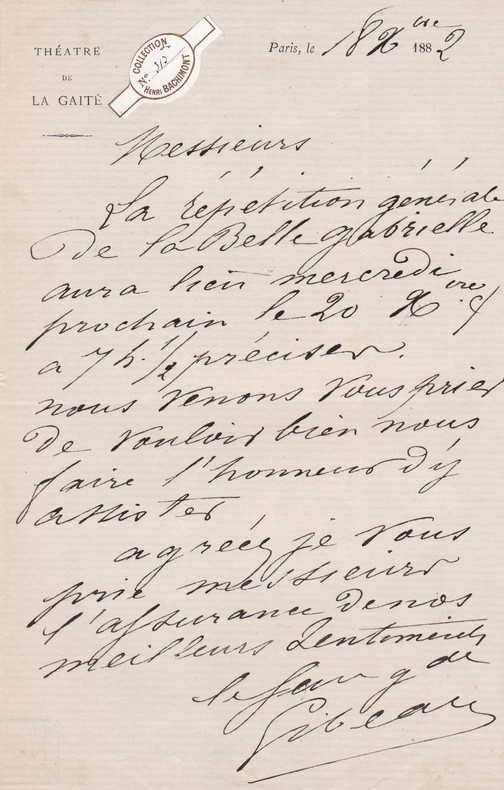 THÉATRE
DE
LA GAITÉ
COLLECTION
No. 312
HENRI BACHIMONT
Paris, le 18 Xbre 1882
Messieurs
La répétition générale
de la Belle gabrielle
aura lieu mercredi
prochain le 20 Xbre
a 7h. 1/2 précises.
nous venons vous prier
de vouloir bien nous
faire l'honneur d'y
assister
agréez je vous
prie messieurs
l'assurance de nos
meilleurs Sentiments